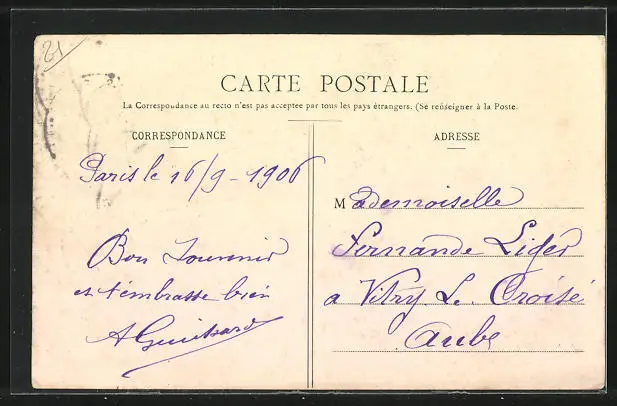 21
CARTE POSTALE
La Correspondance au recto n'est pas acceptée par tous les pays étrangers. (Se renseigner à la Poste.
CORRESPONDANCE
ADRESSE
Paris le 16/9 - 1906
Bon Souvenir
et t'embrasse bien
Mademoiselle
Fernande Liger
a Vitry Le Croisé
Aube